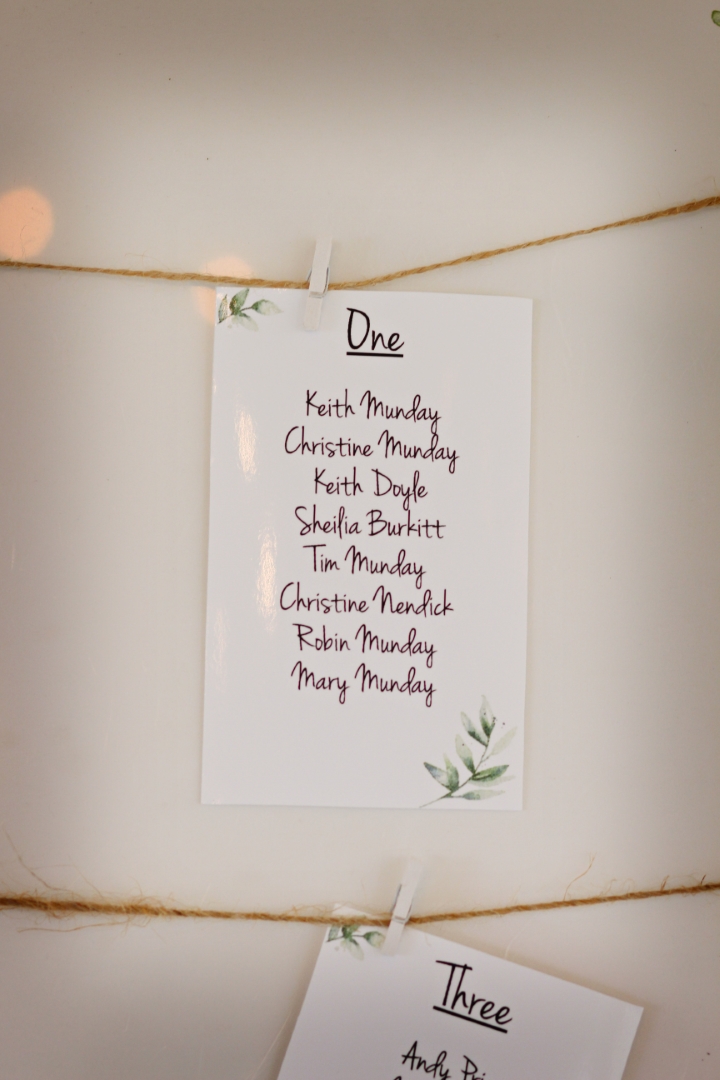 One
Keith Munday
Christine Munday
Keith Doyle
Sheilia Burkitt
Tim Munday
Christine Nendick
Robin Munday
Mary Munday
Three
Andy